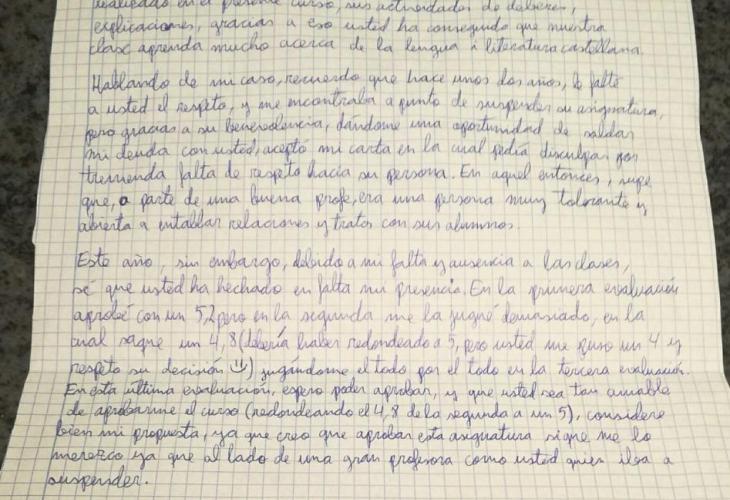 realizado en el presente curso, sus actividades de deberes,
explicaciones, gracias a eso usted ha conseguido que nuestra
clase aprenda mucho acerca de la lengua i literatura castellana.
Hablando de mi caso, recuerdo que hace unos dos años, le falté
a usted el respeto, y me encontraba a punto de suspender su asignatura,
pero gracias a su benevolencia, dándome una oportunidad de saldar
mi deuda con usted, aceptó mi carta en la cual pedía disculpas por
tremenda falta de respeto hacia su persona. En aquel entonces, supe
que, a parte de una buena profe, era una persona muy tolerante y
abierta a entablar relaciones y tratos con sus alumnos.
Este año, sin embargo, debido a mi falta y ausencia a las clases,
sé que usted ha hechado en falta mi presencia. En la primera evaluación
aprobé con un 5,2 pero en la segunda me la jugué demasiado, en la
cual saqué un 4,8 (debería haber redondeado a 5, pero usted me puso un 4 y
respeto su decisión ☺) jugándome el todo por el todo en la tercera evaluación.
En esta última evaluación, espero poder aprobar, y que usted sea tan amable
de aprobarme el curso (redondeando el 4,8 de la segunda a un 5), considere
bien mi propuesta, ya que creo que aprobar esta asignatura sique me lo
merezco ya que al lado de una gran profesora como usted quien iba a
suspender.